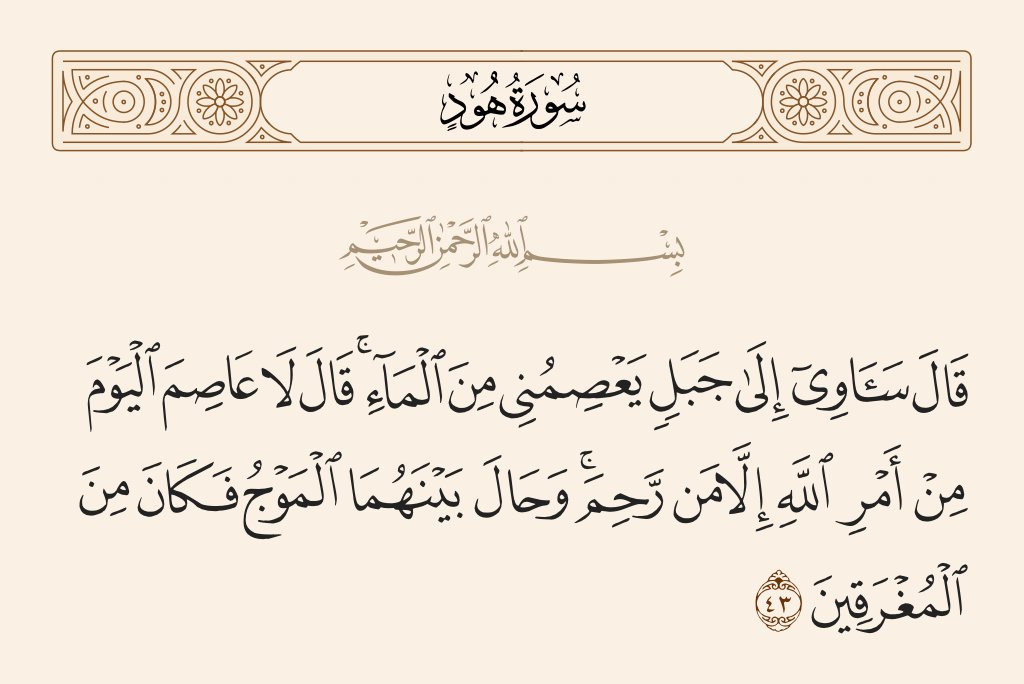 سُورَةُ هُودٍ
بِسْمِ ٱللَّهِ ٱلرَّحْمَٰنِ ٱلرَّحِيمِ
قَالَ سَـَٔاوِىٓ إِلَىٰ جَبَلٍ يَعْصِمُنِى مِنَ ٱلْمَآءِ ۚ قَالَ لَا عَاصِمَ ٱلْيَوْمَ
مِنْ أَمْرِ ٱللَّهِ إِلَّا مَن رَّحِمَ ۚ وَحَالَ بَيْنَهُمَا ٱلْمَوْجُ فَكَانَ مِنَ
ٱلْمُغْرَقِينَ ٤٣